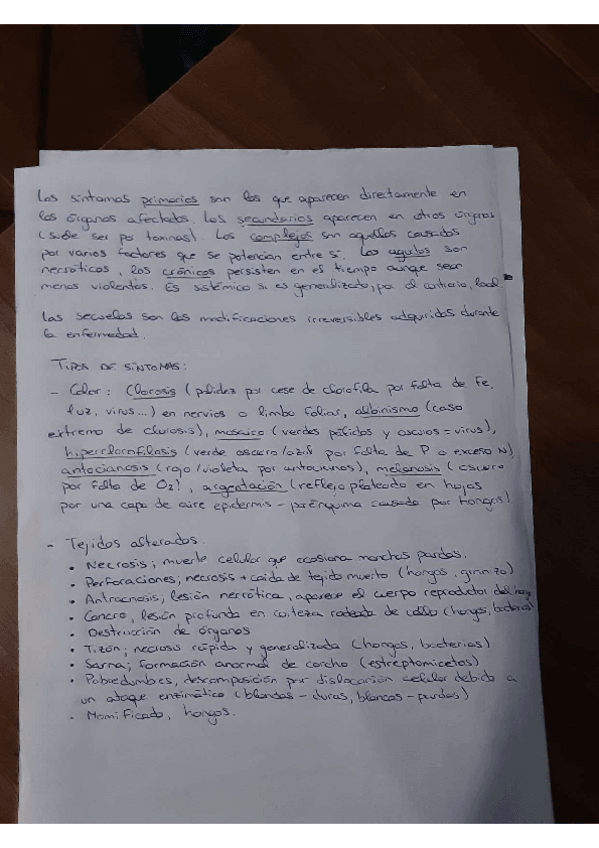 Los síntomas primarios son los que aparecen directamente en
los órganos afectados. Los secundarios aparecen en otros órganos
(suele ser por toxinas). Los complejos son aquellos causados
por varios factores que se potencian entre sí. Los agudos son
necróticos, los crónicos persisten en el tiempo aunque sean
menos violentos. Es sistémico si es generalizado, por el contrario, local
Las secuelas son las modificaciones irreversibles adquiridas durante
la enfermedad.
TIPOS DE SÍNTOMAS:
- Color: Clorosis (palidez por cese de clorofila por falta de Fe,
luz, virus...) en nervios o limbo foliar, albinismo (caso
extremo de clorosis), mosaico (verdes pálidos y oscuros = virus),
hiperclorofilosis (verde oscuro/azul por falta de P o exceso N)
antocianosis (rojo/violeta por antocianos), melanosis (oscuro
por falta de O2), argentación (reflejo plateado en hojas
por una capa de aire epidermis - parénquima causado por hongos).
- Tejidos alterados.
• Necrosis; muerte celular que ocasiona manchas pardas.
• Perforaciones; necrosis + caída de tejido muerto (hongos, granizo)
• Antracnosis; lesión necrótica, aparece el cuerpo reproductor del hongo
• Cancro, lesión profunda en corteza rodeada de callo (hongos, bacterias)
• Destrucción de órganos
• Tizón; necrosis rápida y generalizada (hongos, bacterias)
• Sarna; formación anormal de corcho (estreptomicetos)
• Pobredumbres, descomposición por dislocación celular debido a
un ataque enzimático (blandas - duras, blancas - pardas)
• Momificado, hongos.